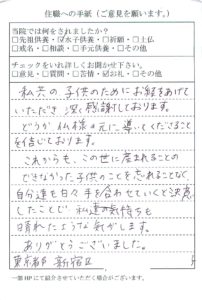 住職への手紙（ご意見を願います。）
当院では何をされましたか？
□先祖供養・☑水子供養・□祈願・□土仏
□戒名・□相談・□手元供養・□その他
チェックをいれ詳しくお聞かせ下さい。
□意見・□質問・□苦情・☑お礼・□その他
私共の子供のためにお経をあげて
いただき 深く感謝しております。
どうか仏様の元に、導いてくださることを
信じております。
これからも、この世に産まれることの
できなかった子供のことを忘れることなく
自分達も日々手を合わせていくと決意
したことで 私達の気持ちも
晴れたような気がします。
ありがとうございました。
東京都 新宿区
一部HPにて紹介させていただく場合がございます。